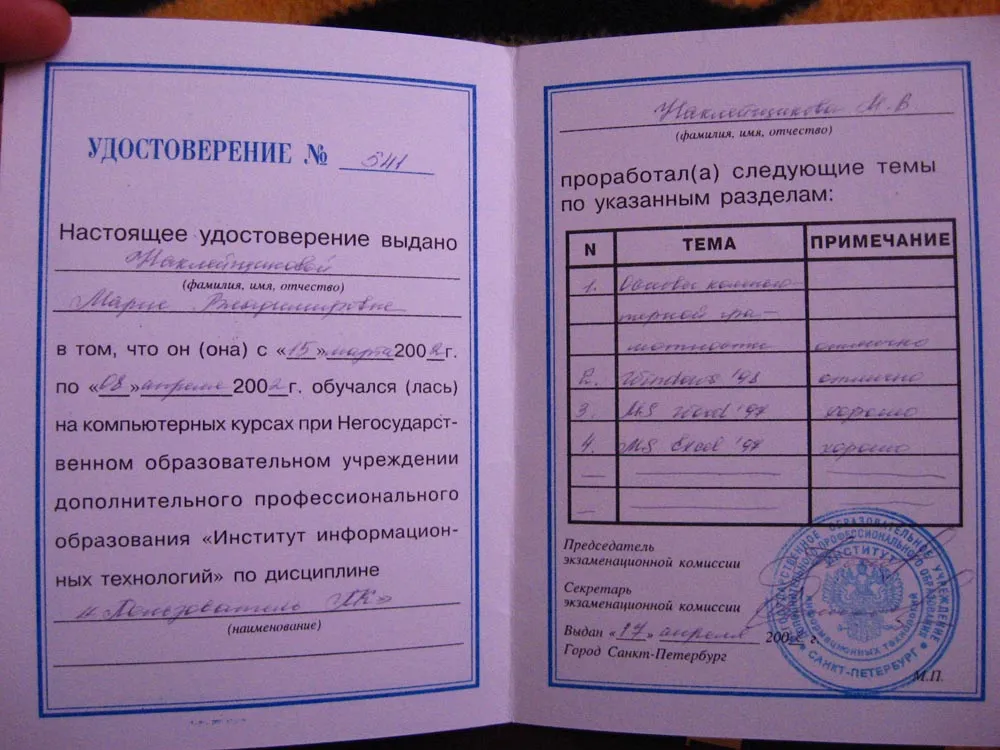 УДОСТОВЕРЕНИЕ № 541
Настоящее удостоверение выдано
Наклейщиковой
(фамилия, имя, отчество)
Марие Владимировне
в том, что он (она) с «15» марта 2002г.
по «08» апреля 2002г. обучался (лась)
на компьютерных курсах при Негосударст-
венном образовательном учреждении
дополнительного профессионального
образования «Институт информацион-
ных технологий» по дисциплине
"Пользователь ПК"
(наименование)
Наклейщикова М.В.
(фамилия, имя, отчество)
проработал(а) следующие темы
по указанным разделам:
N ТЕМА ПРИМЕЧАНИЕ
1. Основы компью-
терной гра-
мотности отлично
2. Windows '98 отлично
3. MS Word '97 хорошо
4. MS Excel '97 хорошо
Председатель
экзаменационной комиссии
Секретарь
экзаменационной комиссии
Выдан «17» апреля 2002 г.
Город Санкт-Петербург
М.П.
ОБРАЗОВАТЕЛЬНОЕ УЧРЕЖДЕНИЕ
ПРОФЕССИОНАЛЬНОГО ОБРАЗОВАНИЯ
ИНСТИТУТ
ИНФОРМАЦИОННЫХ ТЕХНОЛОГИЙ
САНКТ-ПЕТЕРБУРГ